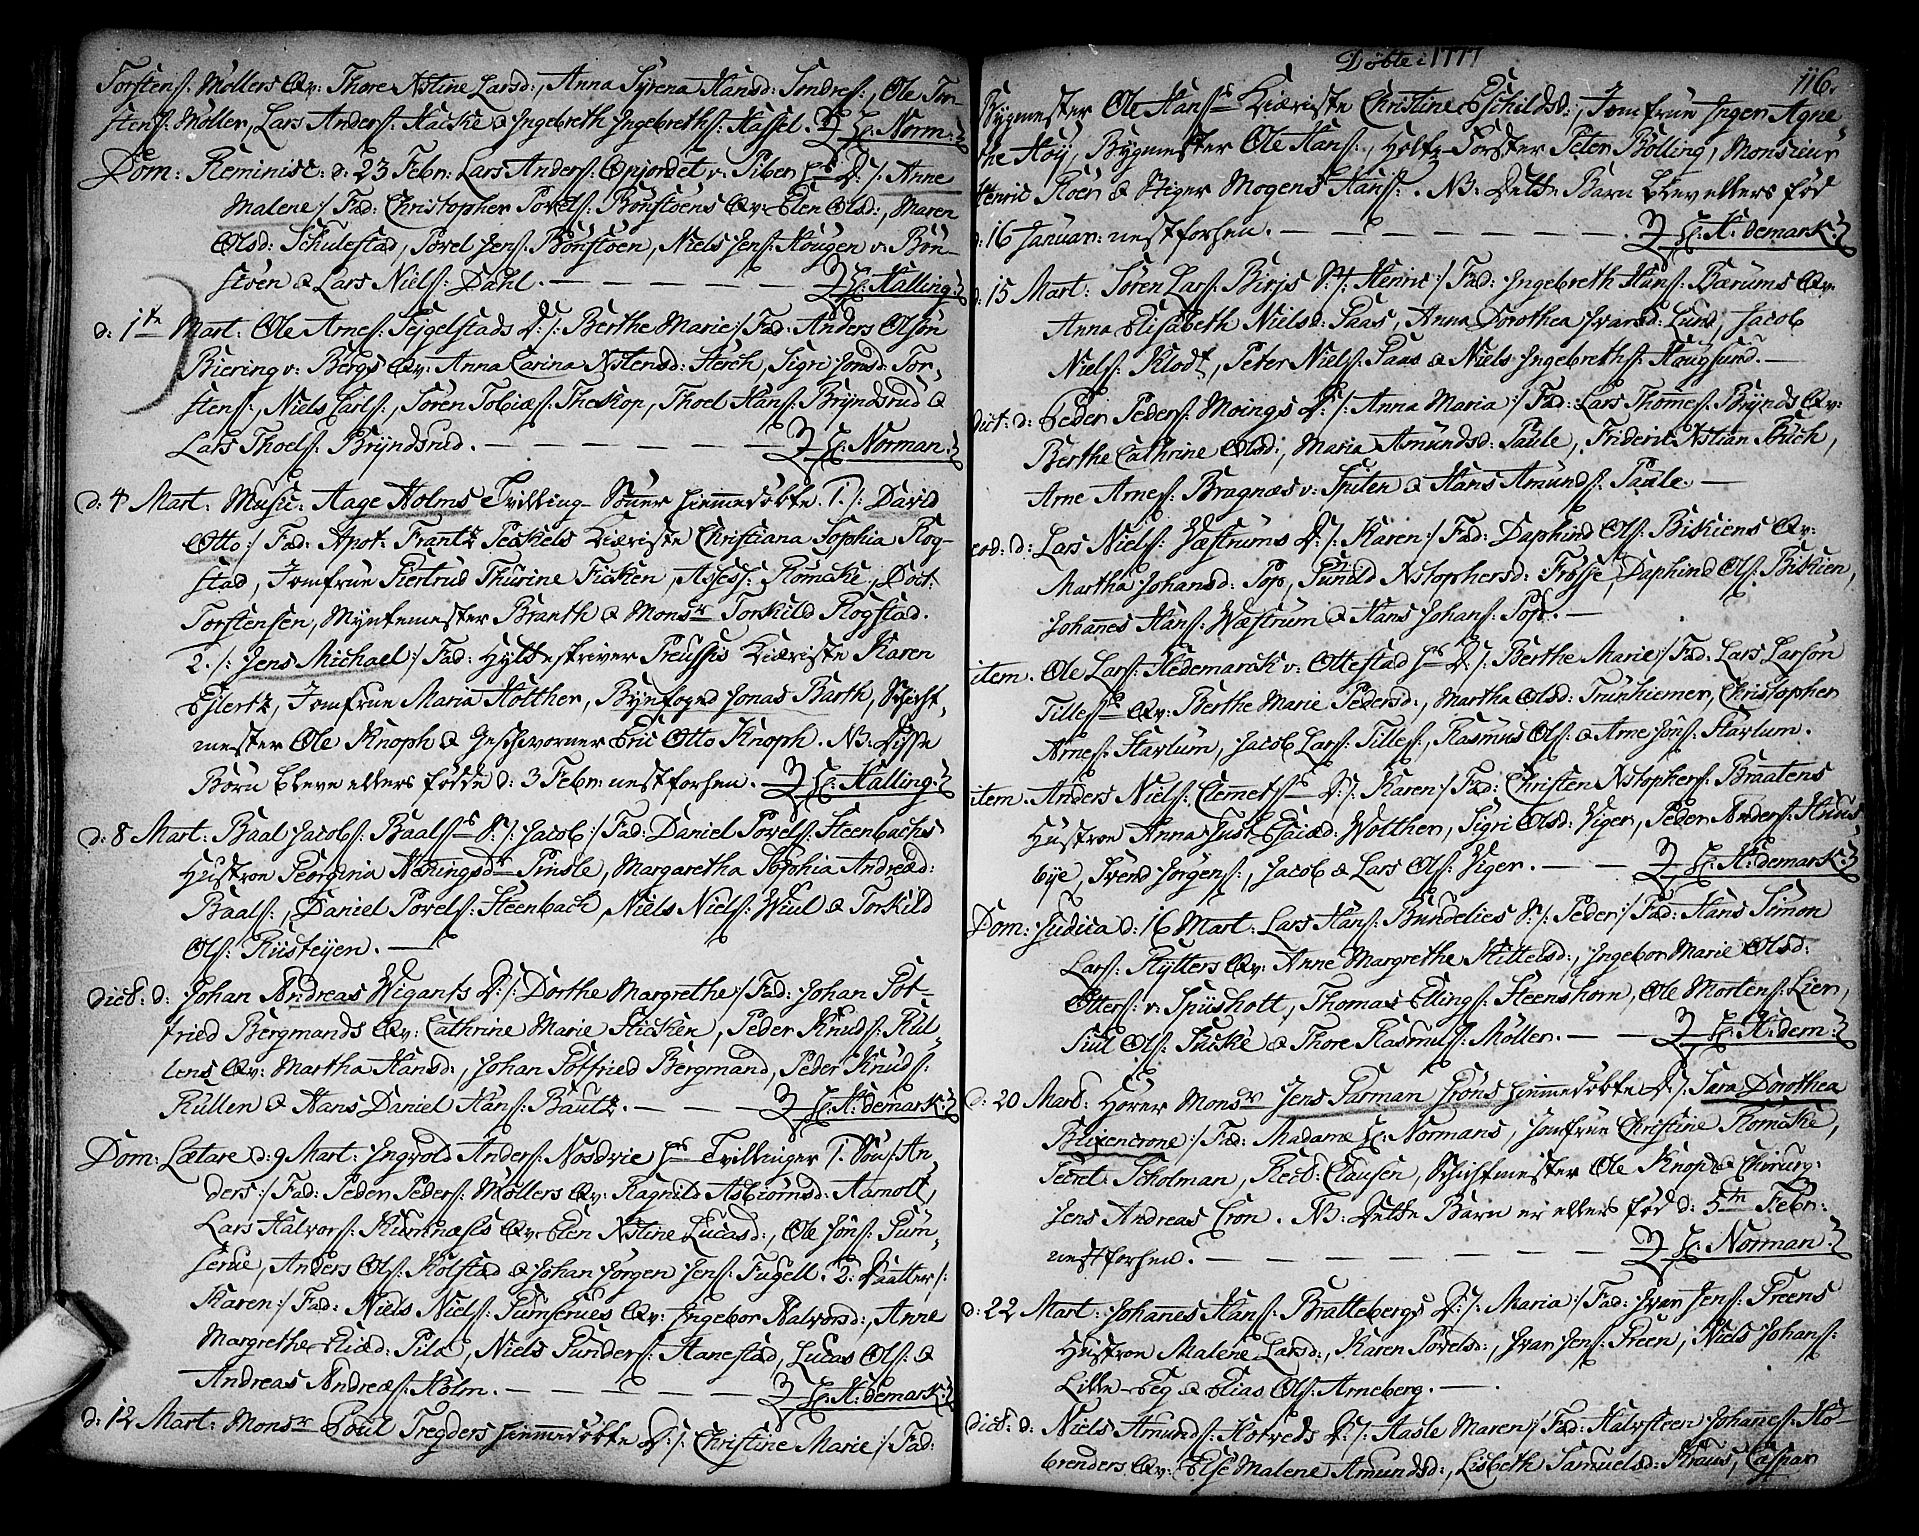 Torstens: Møllers Qv: Thore Xstine Larsd:, Anna Syrena Hansd: Sondres:, Ole Tor-
stens: Møller, Lars Anders: Hacke & Ingebreth Ingebreths: Hassel. H: Norm:
Dom: Reminisc: d: 23 Febr: Lars Anders: Opjordet v: Fiber hs D: /: Anne
Malene :/ Fad: Christopher Povels: Bønstøens Qv: Elen Olsd:, Maren
Olsd: Schulestad, Povel Jens: Bønstøen, Niels Jens: Hougen v: Bøn-
støen & Lars Niels: Dahl. H: Halling:
d: 1te Mart: Ole Arnes: Tejgelstads D: /: Berthe Marie :/ Fad: Anders Olsøn
Biering v: Bergs Qv: Anna Carina Xstensd: Sterch, Sigri Jonsd: Tor-
stens:, Niels Carls:, Søren Tobiæs: Theskop, Thoel Hans: Bryndsrud &
Lars Thoels: Bryndsrud. H: Norman:
d: 4 Mart: Music: Aage Holms Tvilling-Sønner hiemmedøbte. 1. /: David
Otto :/ Fad: Apot: Frantz Peckels Kiæriste Christiana Sophia Rog-
stad, Jomfrue Giertrud Thurine Ficken, Assess: Römcke, Doct:
Torstensen, Myntemester Branth & Monsr Torkild Rogstad.
2. /: Jens Michael :/ Fad: Hytteskriver Preussis Kiæriste Karen
Eylertz, Jomfrue Maria Holther, Byefoged Jonas Barth, Schicht-
mester Ole Knoph & Geschworner Eric Otto Knoph. NB: Disse
Børn bleve ellers fødde d: 3 Febr: nestforhen. H: Halling:
d: 8 Mart: Baal Jacobs: Baalss S: /: Jacob :/ Fad: Daniel Povels: Steenbachs
Hustroe Georgina Heningsdr Pinsle, Margaretha Sophia Andreæd:
Baals:, Daniel Povels: Steenbach, Niels Niels: Wiul & Torkild
Ols: Riisteyen.
dict: d: Johan Andreas Wigants D: /: Dorthe Margrethe :/ Fad: Johan Got-
fried Bergmands Qv: Cathrine Marie Sticken, Peder Knuds: Rul-
lens Qv: Martha Hansd:, Johan Gotfried Bergmand, Peder Knuds:
Rullen & Hans Daniel Hans: Bautz. H: H:demark:
Dom: Lætare d: 9 Mart: Ingvold Anders: Nosdvie hs Tvillinger 1. Søn /: An-
ders :/ Fad: Peder Peders: Møllers Qv: Ragnild Asbiørnsd: Aamolt,
Lars Halvors: Rumnæsis Qv: Elen Xstine Lucasd:, Ole Jøns: Gum-
serue, Anders Ols: Kolstad & Johan Jørgen Jens: Fugell. 2: Daatter /:
Karen :/ Fad: Niels Niels: Gumserues Qv: Ingebor Halvorsd:, Anne
Margrethe Eliæd: Pila, Niels Gunders: Hanestad, Lucas Ols: &
Andreas Andreæs: Holm. H: H:demark:
d: 12 Mart: Monsr Poul Tregders hiemmedøbte D: /: Christine Marie :/ Fad:
Døbte i 1777
116.
Bygmester Ole Hanss Kiæriste Christine Eschildsd:, Jomfrue Inger Agne-
the Høy, Bygmester Ole Hans:, Holtz-Førster Peter Bolling, Monsieur
Henric Roen & Stiger Mogens Hans: . NB: Dette Barn blev ellers fød
d: 16 Januar: nestforhen. H: H:demark:
d: 15 Mart: Søren Lars: Birjs S: /: Henric :/ Fad: Ingebreth Hans: Bærums Qv:
Anna Elisabeth Nielsd: Gaas, Anna Dorothea Ivarsd: Lund, Jacob
Niels: Klodt, Peter Niels: Gaas & Niels Ingebreths: Hougsund.
dict: d: Peder Peders: Moings D: /: Anna Maria :/ Fad: Lars Thomes: Brynds Qv:
Berthe Cathrine Olsd:, Maria Asmundsd: Paule, Frideric Xstian Struch,
Arne Arnes: Bragnæs v: Spiten & Hans Amunds: Paule.
eod: d: Lars Niels: Wæstrums D: /: Karen :/ Fad: Daphind Ols: Bikiens Qv:
Martha Johansd: Pop, Gunild Xstophersd: Frösje, Daphind Ols: Bikien,
Johannes Hans: Wæstrum & Hans Johans: Pop.
item. Ole Lars: Hedemarck v: Ottestad hs D: /: Berthe Marie :/ Fad: Lars Larsøn
Tilless Qv: Berthe Marie Pedersd:, Martha Olsd: Trunhiemer, Christopher
Arnes: Skarlum, Jacob Lars: Tilles:, Rasmus Ols: & Arne Jøns: Skarlum.
item. Anders Niels: Clemetss D: /: Karen :/ Fad: Christen Xstophers: Braatens
Hustroe Anna Just Esaiæd: Wolther, Sigri Olsd: Viger, Peder Anders: Huus-
bye, Svend Jörgens:, Jacob & Lars Ols: Viger. H: H:demark:
Dom: Judica d: 16 Mart: Lars Hans: Bundelies S: /: Peder :/ Fad: Hans Simon
Lars: Skytters Qv: Anne Margrethe Kittelsd:, Ingebor Marie Olsd:
Otters: v: Spiisholt, Thomas Ellings: Steenshorn, Ole Mortens: Lien,
Giul Ols: Funcke & Thore Rasmus: Møller. H: H:dem:
d: 20 Mart: Hører Monsr Jens Garman Crøns hiemmedøbte D: /: Sara Dorothea
Blixencrone :/ Fad: Madame H: Normans, Jomfrue Christine Römcke,
Secret: Scholman, Rect: Clausen, Schichtmester Ole Knoph & Chirurg:
Jens Andreas Cron. NB: Dette Barn er ellers fød d: 5te Febr:
nestforhen. H: Norman:
d: 22 Mart: Johannes Hans: Brattebergs D: /: Maria :/ Fad: Ivar Jens: Green's
Hustroe Malene Larsd:, Karen Povelsd:, Ivar Jens: Green, Niels Johans:
Lille-Eeg & Elias Ols: Arneberg.
dict: d: Niels Amunds: Hotveds D: /: Aasle Maren :/ Fad: Halvsteen Johannes: Ho-
brenders Qv: Else Malene Amundsd:, Lisbeth Samuelsd: Kraus, Caspar